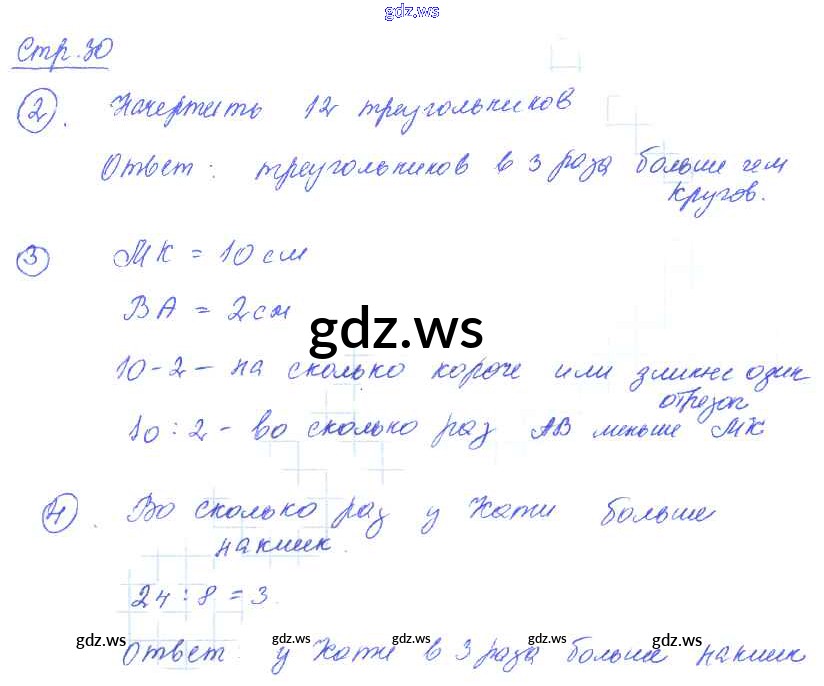 gdz.ws
Стр.30
2. Начертить 12 треугольников
Ответ: треугольников в 3 раза больше чем
кругов.
3 МК = 10 см
ВА = 2 см
gdz.ws
10-2 - на сколько короче или длинне один
отрезок
10:2 - во сколько раз АВ меньше МК
4. Во сколько раз у Кати больше
наклеек.
24:8=3.
gdz.ws gdz.ws gdz.ws gdz.ws
Ответ: у Кати в 3 раза больше